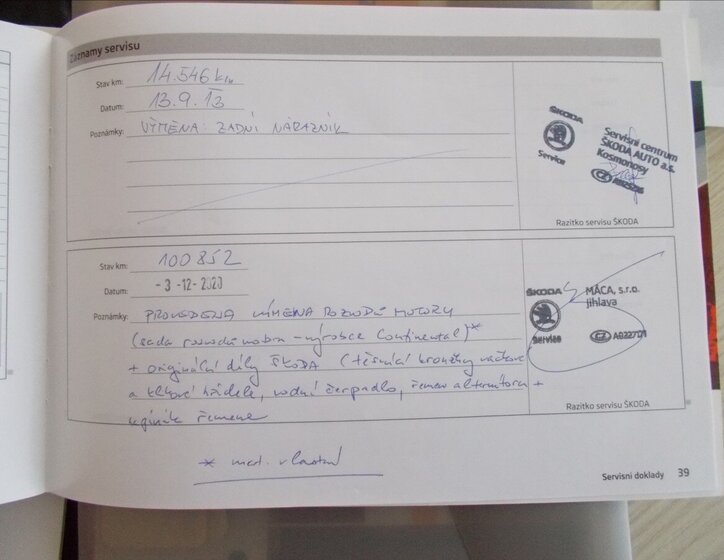 Záznamy servisu
Stav km: 14.546 km
Datum: 13.9.13
Poznámky: VÝMĚNA: ZADNÍ NÁRAZNÍK
ŠKODA
Service
Servisní centrum
ŠKODA AUTO a.s.
Kosmonosy
Razítko servisu ŠKODA
Stav km: 100852
Datum: -3-12-2020
Poznámky: PROVEDENA VÝMĚNA ROZVODŮ MOTORU
(sada rozvodů motoru - výrobce Continental)*
+ originální díly ŠKODA (těsnící kroužky vačkové
a klikové hřídele, vodní čerpadlo, řemen alternátoru +
napínák řemene
ŠKODA
Service
MÁCA, s.r.o.
Jihlava
Razítko servisu ŠKODA
* mat. vlastní
Servisní doklady 39